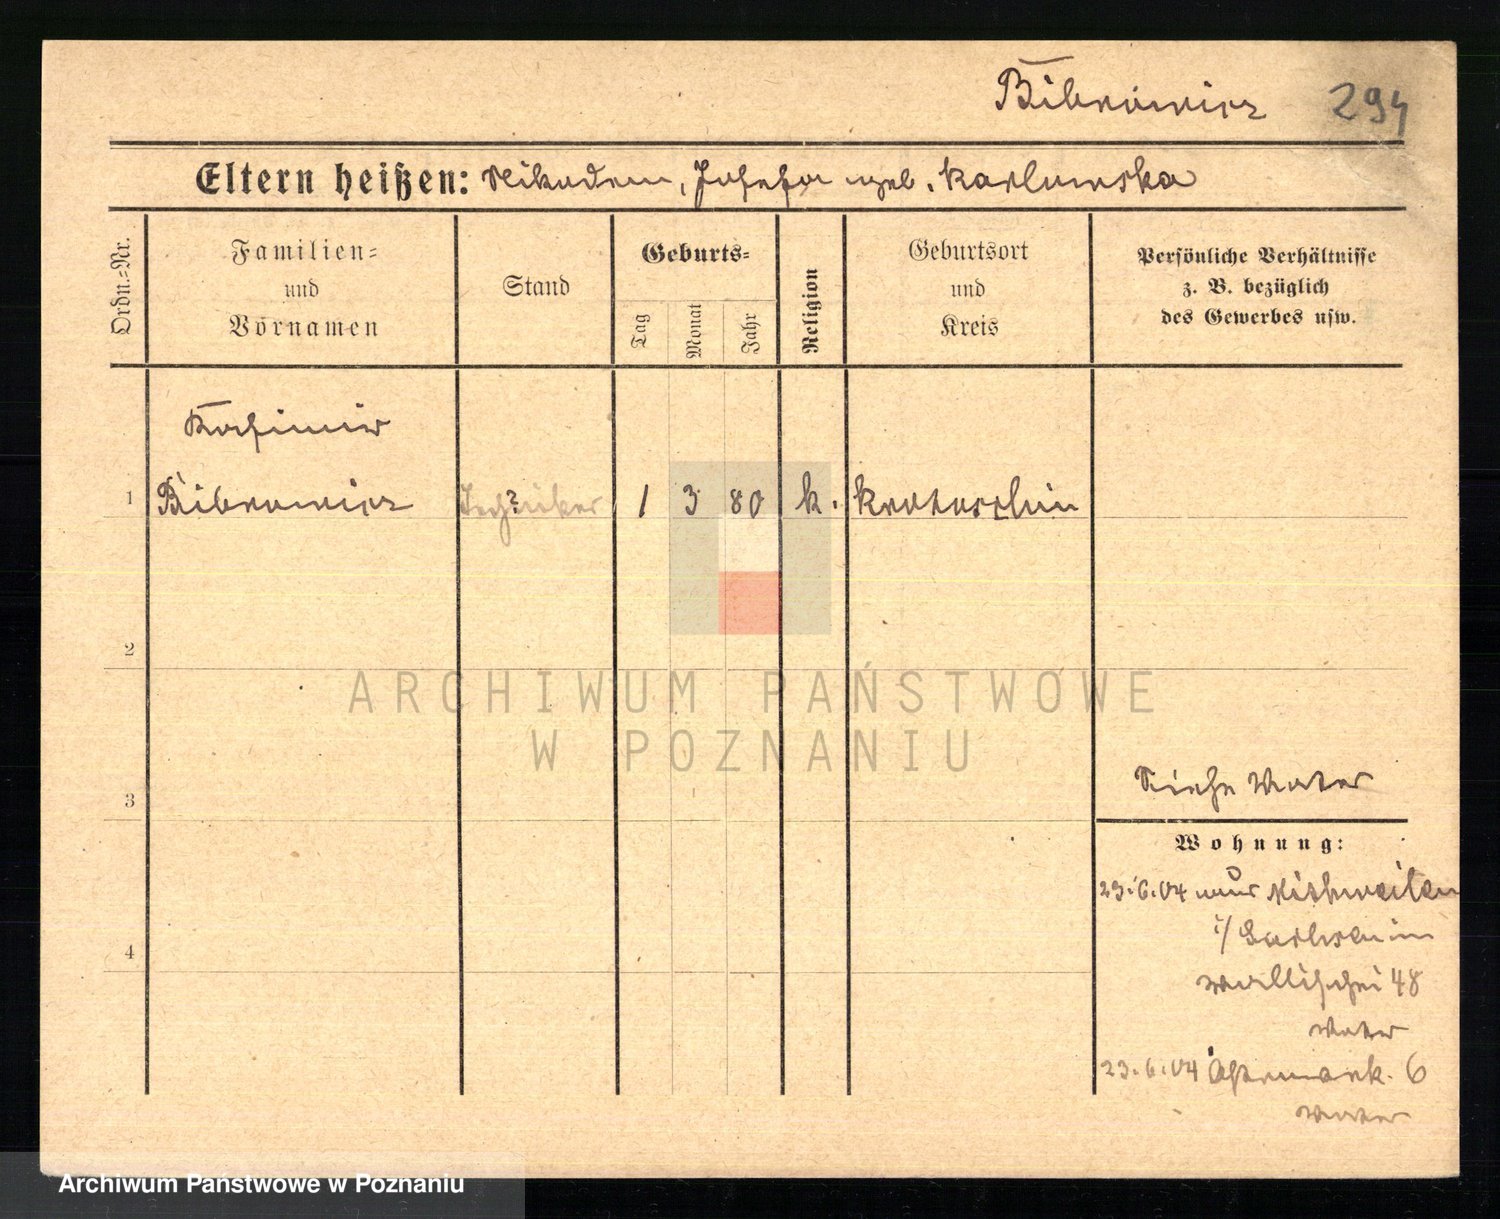 Bibrowicz 294
Eltern heißen: Nikodem, Josefa geb. Karlowska
Ordn.-Nr.
Familien-
und
Vornamen
Stand
Geburts-
Tag
Monat
Jahr
Religion
Geburtsort
und
Kreis
Persönliche Verhältnisse
z. B. bezüglich
des Gewerbes usw.
Kasimir
1 Bibrowicz Techniker ? 1 3 80 k. Krotoschin
2
ARCHIWUM PAŃSTWOWE
W POZNANIU
Siehe Vater
3
Wohnung:
23.6.04 von
i/
4
Wallischei 48
Vater
23.6.04 6
Vater
Archiwum Państwowe w Poznaniu